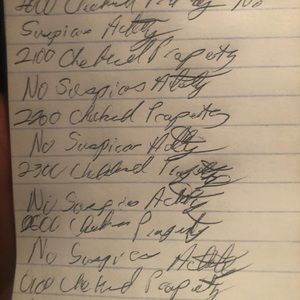 2000 Checked Property No
Suspicios Activity
2100 Checked Property
No Suspicios Activity
2200 Checked Property
No Suspicios Activity
2300 Checked Property
No Suspios Activity
0000 Checked Property
No Suspicios Activity
0100 Checked Property